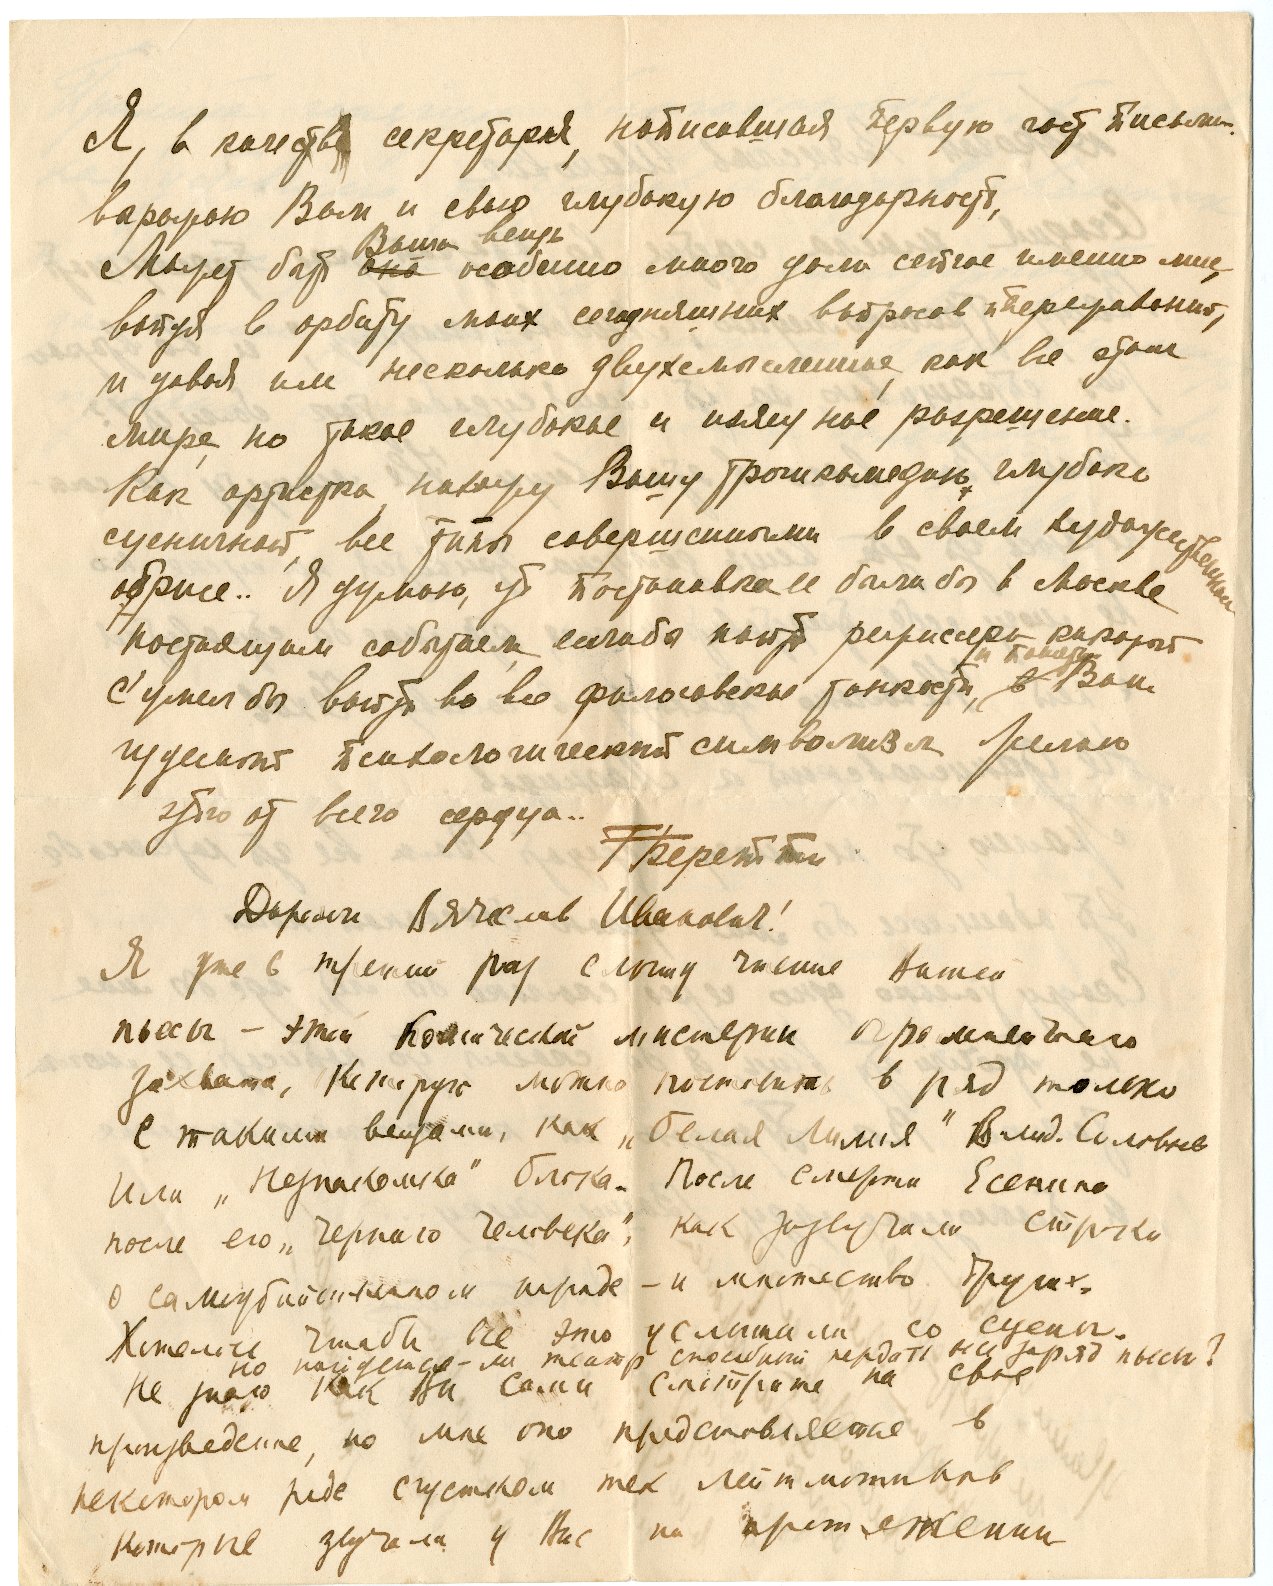 Я, в качестве секретаря, написавшая первую часть письма
выражаю Вам и свою глубокую благодарность,
Может быть Ваша вещь
она особенно много дала сейчас именно мне,
войдя в орбиту моих сегодняшних вопросов и переживаний,
и давая им несколько двухсмысленное, как все в этом
мире, но такое глубокое и нужное разрешение.
Как артистка нахожу Вашу трагикомедию глубоко
сценичной, все типы совершенными в своем художественном
абрисе.. Я думаю, что постановка ее была бы в Москве
настоящим событием, если бы найти режиссера который
с'умел бы войти во все философские тонкости, и понять
в Ваш
чудесный психологический символизм. Желаю
этого от всего сердца..
Дорогой Вячеслав Иванович!
Я уже в третий раз слышу чтение Вашей
пьесы – этой комической мистерии огромнейшего
захвата, которую можно поставить в ряд только
с такими вещами, как „Белая Лилия" Влад. Соловьева
или „Незнакомка" Блока. После смерти Есенина
после его „Черного Человека", как зазвучали строки
о самоубийственном народе – и множество других.
Хотелось чтобы все это услышали со сцены.
но найдется-ли театр способный передать весь заряд пьесы?
Не знаю как Вы сами смотрите на свое
произведение, но мне оно представляется в
некотором роде сгустком тех лейтмотивов
которые звучали у Вас на протяжении